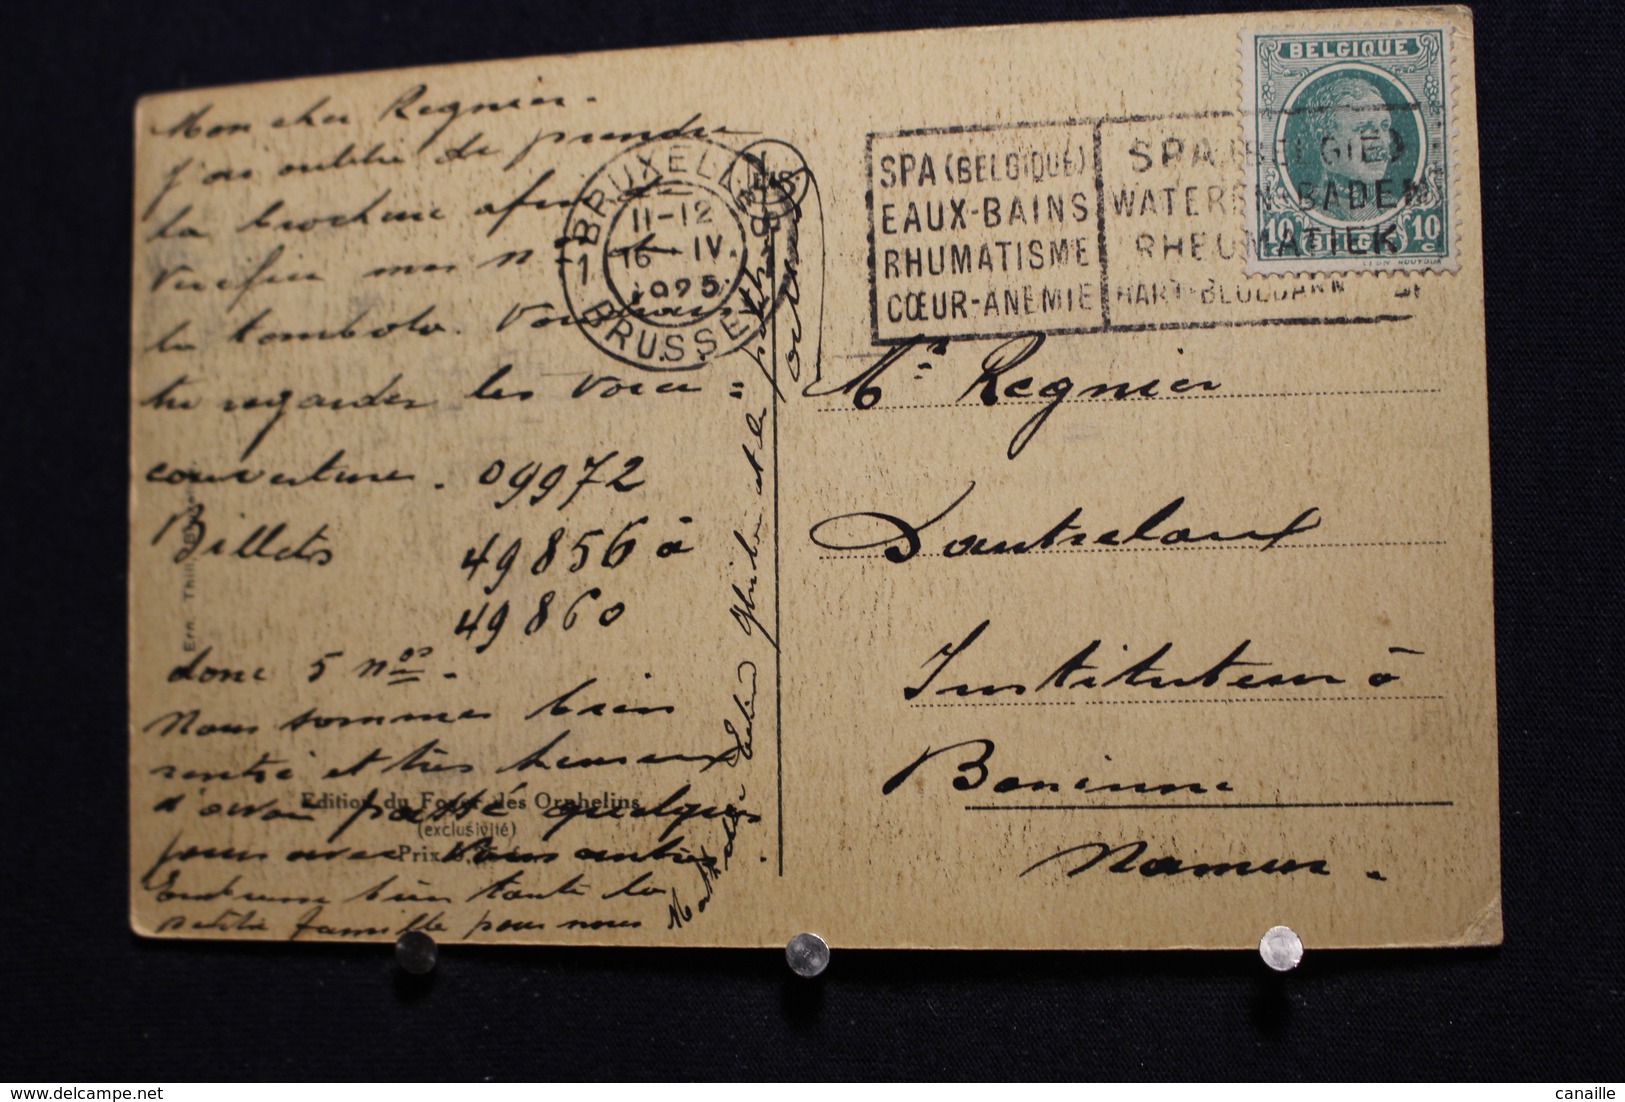 Mon cher Regnier.
j'ai oublié de prendre
la brochure afin de
verifier mes nos
la tombola. Voudrais
tu regarder les voici =
couverture. 09972
Billets 49856 à
49860
donc 5 nos.
Nous sommes bien
rentré et très heureux
d'avoir passé quelques
jours avec vous autres
Embrasse bien toute la
petite famille pour nous
Edition du Foyer des Orphelins
(exclusivité)
Prix
Ern. Thill
BRUXELLES
11-12
16 IV.
1925
BRUSSEL
1
SPA (BELGIQUE)
EAUX-BAINS
RHUMATISME
CŒUR-ANEMIE
SPA (BELGIË)
WATEREN-BADEN
RHEUMATIEK
HART-BLOEDARM
BELGIQUE
10c BELGIË 10c
Mr Regnier
Dautreloux
Instituteur à
Boninne
Namur.
www.delcampe.net
canaille